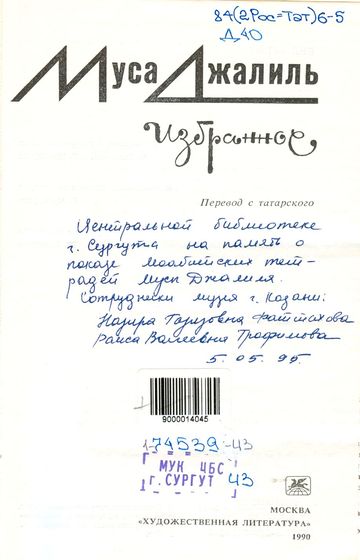 84(2Рос=Тат)6-5
Д 40
Муса Джалиль
Избранное
Перевод с татарского
Центральной библиотеке
г. Сургута на память о
показе Моабитских тет-
радей Мусы Джалиля.
Сотрудники музея г. Казани:
Назира Фаттахова
Раиса Валеевна Трофимова
5. 05. 95.
9000014045
174539-43
МУК ЦБС
г. СУРГУТ 43
МОСКВА
«ХУДОЖЕСТВЕННАЯ ЛИТЕРАТУРА»
1990